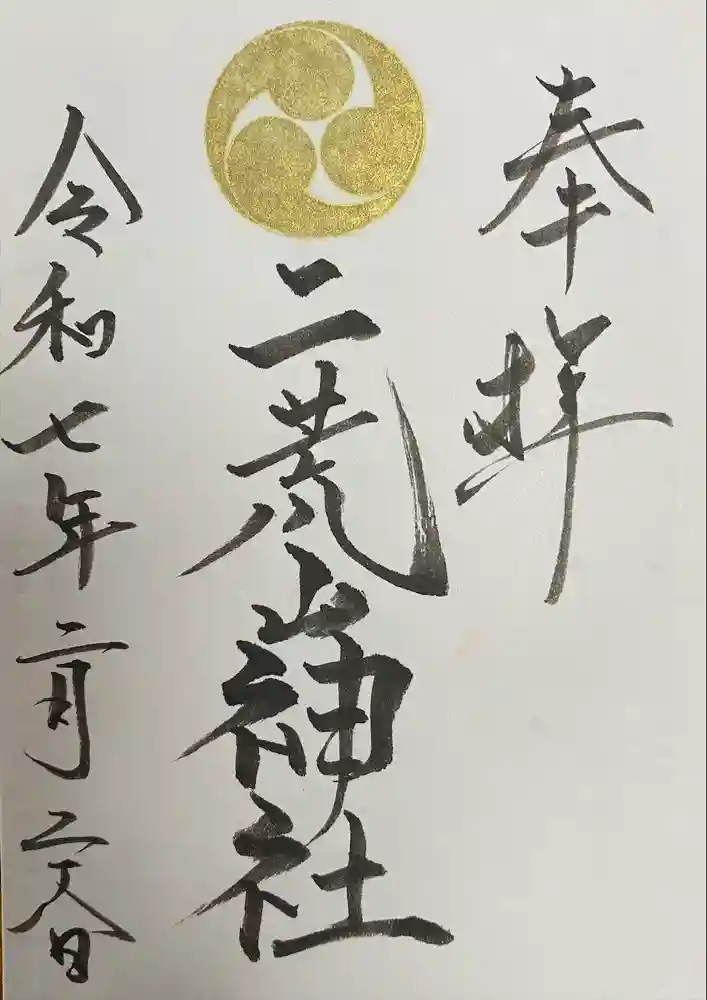 奉拝
二荒山神社
令和七年二月二六日